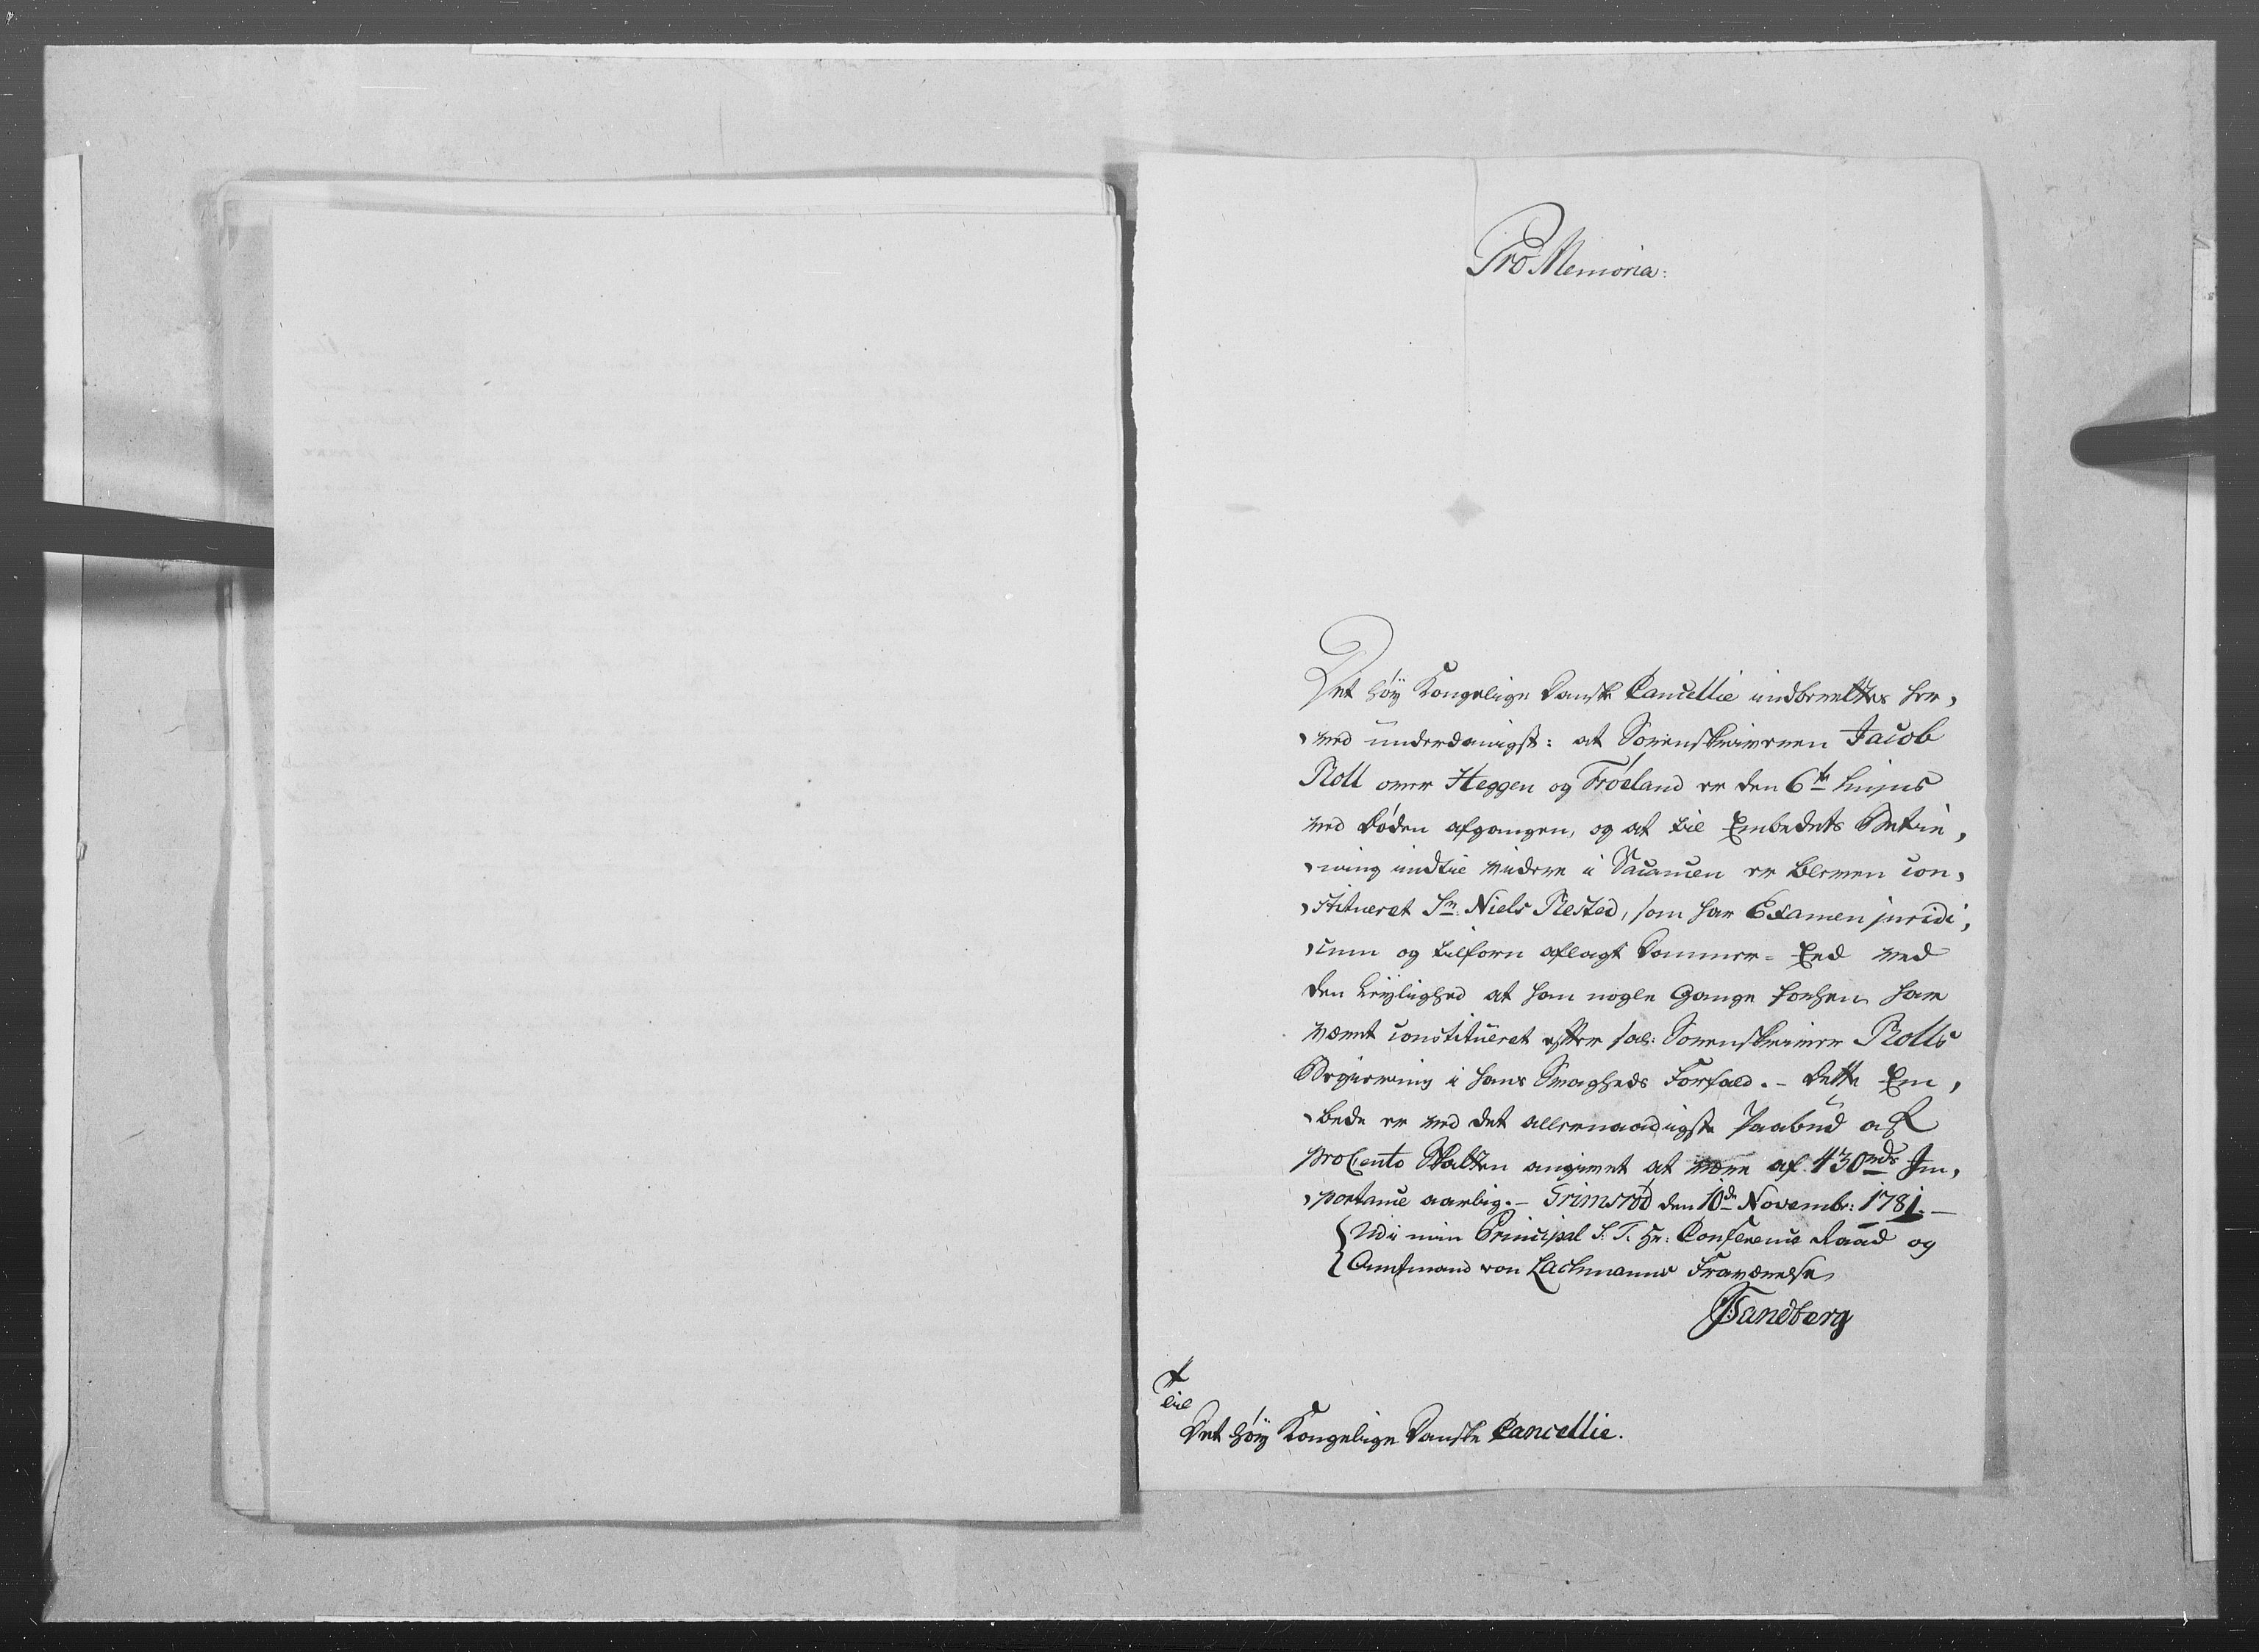 Pro Memoria:
Det höÿ Kongelige Danske Cancellie indberettes her,
„ved underdanigst: at Sorenskriveren Jacob
Roll over Heggen og Frøeland er den 6te hujus
ved Døden afgangen, og at til Embedets Betie,
„ning indtil videre i Vacancen er bleven con,
„stitueret Sr. Niels Rested, som har Examen juridi,
„cum og tilforn aflagt Dommer-Eed ved
den Leÿlighed at han nogle Gange forhen har
været constitueret efter sal: Sorenskriver Rolls
Begiering i hans Svagheds Forfald. – Dette Em,
„bede er ved det allernaadigste Paabud af
proCento Skatten angivet at være af 430 rd. Im,
„portance aarlig. – Grimsrød den 10de Novembr: 1781. –
Udi min Principal S. T. Hr: Conference Raad og
Amtmand von Lachmanns Fraværelse
Sandberg
Til
Det höÿ Kongelige Danske Cancellie.